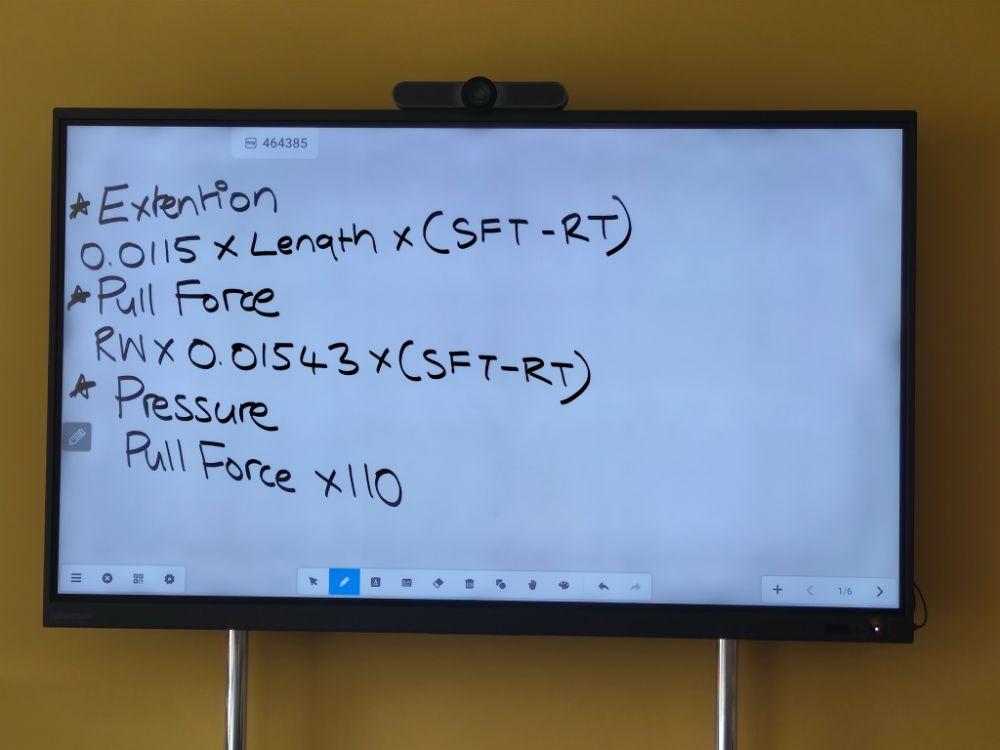 464385
☆ Extention
0.0115 × Length × (SFT-RT)
☆ Pull Force
RW × 0.01543 × (SFT-RT)
☆ Pressure
Pull Force ×110
1/6